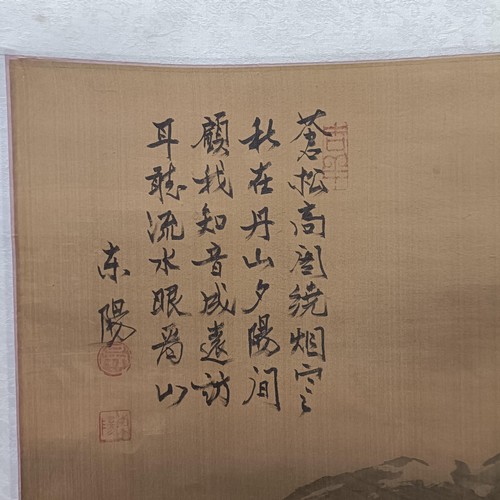 蒼松高閣繞烟寒
秋在丹山夕陽間
顧我知音成遠訪
耳聽流水眼看山
東陽